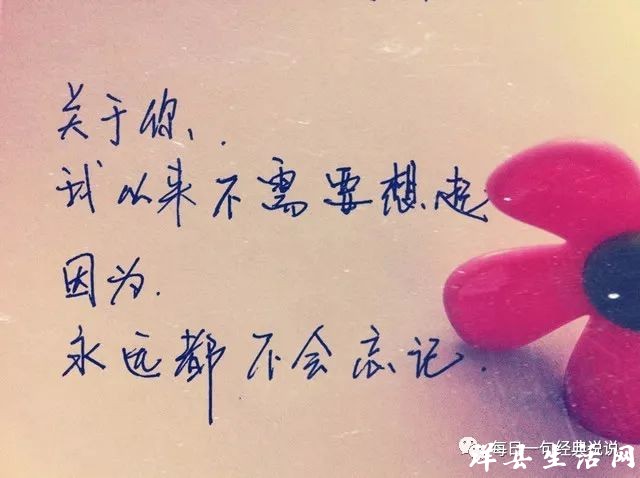 关于你、.
我从来不需要想起
因为.
永远都不会忘记.
每日一句经典说说
辉县生活网